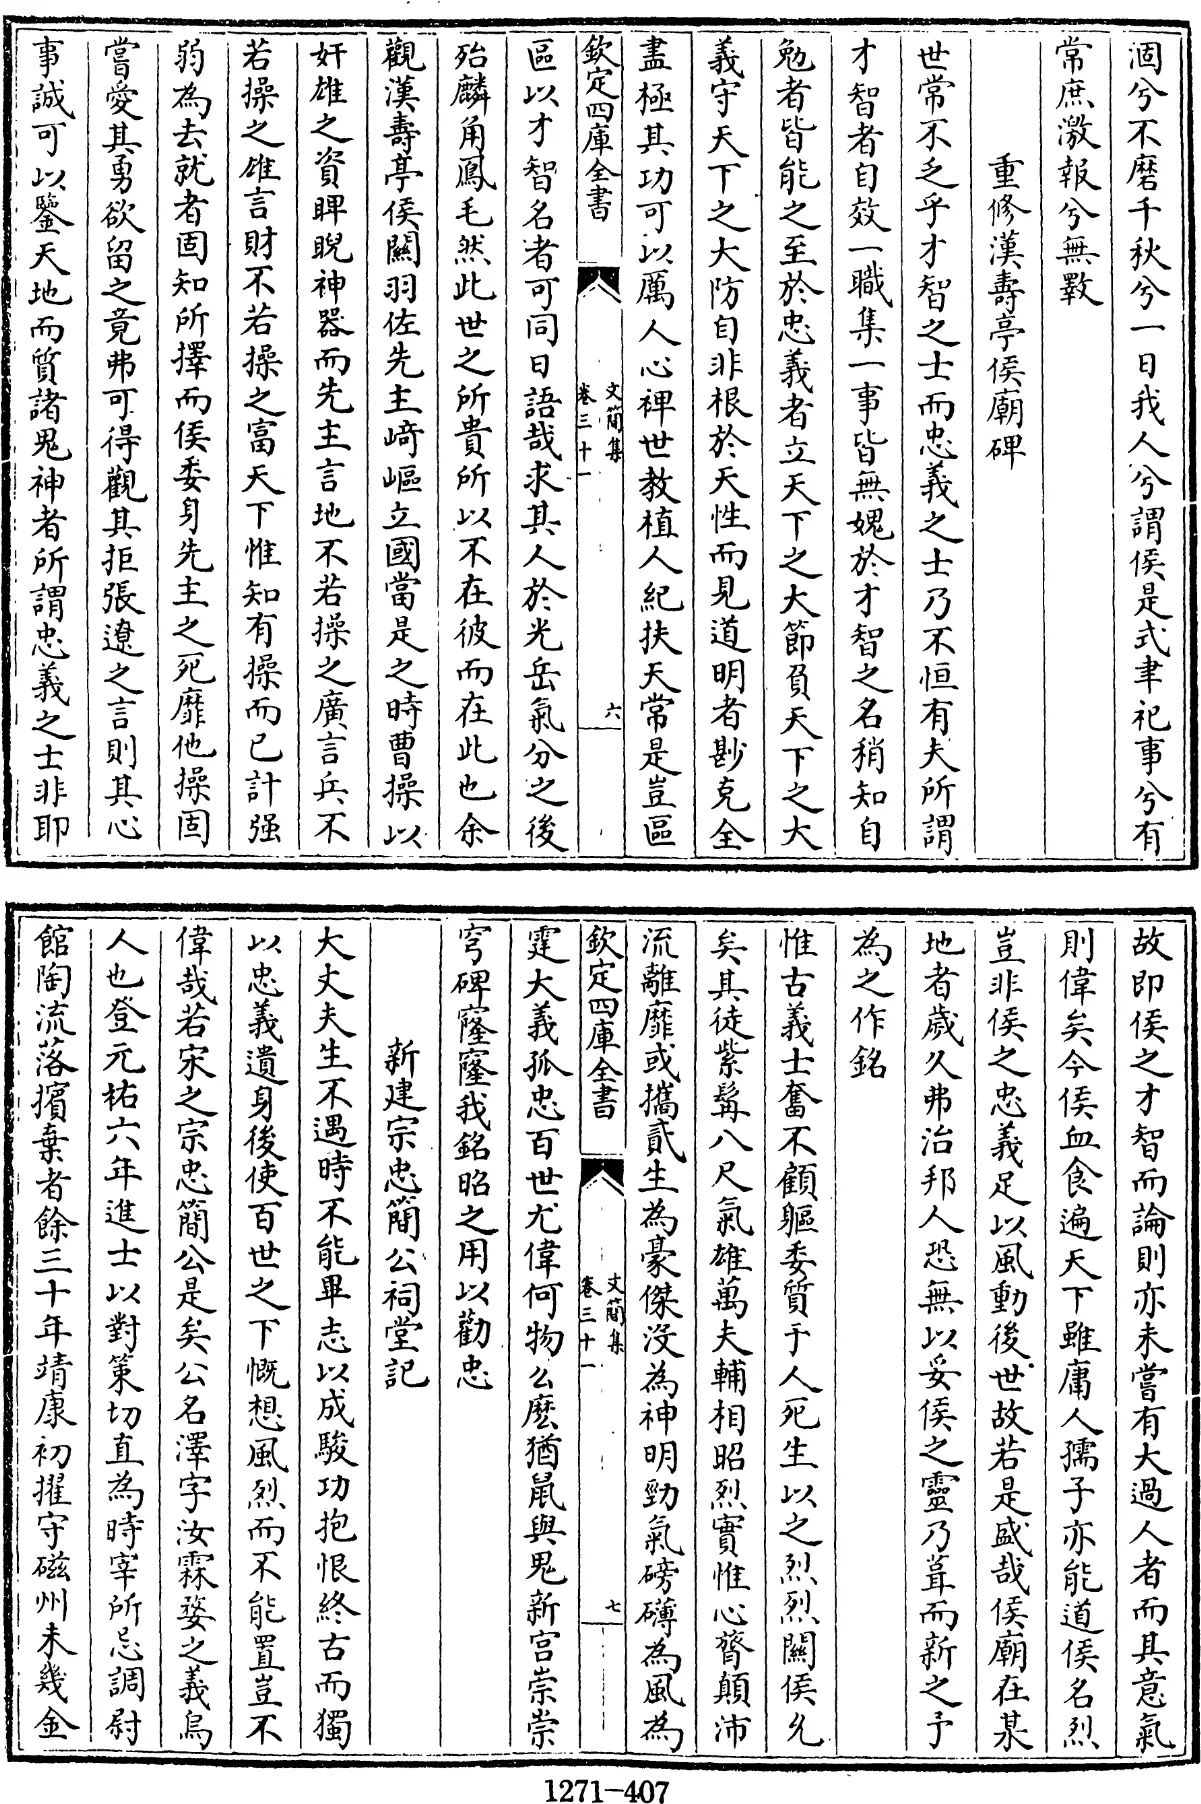 涸兮不磨千秋兮一日我人兮謂侯是式聿祀事兮有
常庶激報兮無斁
重修漢壽亭侯廟碑
世常不乏乎才智之士而忠義之士乃不恒有夫所謂
才智者自效一職集一事皆無媿於才智之名稍知自
勉者皆能之至於忠義者立天下之大節負天下之大
義守天下之大防自非根於天性而見道明者尠克全
盡極其功可以厲人心裨世教植人紀扶天常是豈區
欽定四庫全書
文簡集
卷三十一
六
區以才智名者可同日語哉求其人於光岳氣分之後
殆麟角鳳毛然此世之所貴所以不在彼而在此也余
觀漢壽亭侯關羽佐先主崎嶇立國當是之時曹操以
奸雄之資睥睨神器而先主言地不若操之廣言兵不
若操之雄言財不若操之富天下惟知有操而已計强
弱為去就者固知所擇而侯委身先主之死靡他操固
嘗愛其勇欲留之竟弗可得觀其拒張遼之言則其心
事誠可以鑒天地而質諸鬼神者所謂忠義之士非耶
故即侯之才智而論則亦未嘗有大過人者而其意氣
則偉矣今侯血食遍天下雖庸人孺子亦能道侯名烈
豈非侯之忠義足以風動後世故若是盛哉侯廟在某
地者歲久弗治邦人恐無以妥侯之靈乃葺而新之予
為之作銘
惟古義士奮不顧軀委質于人死生以之烈烈關侯允
矣其徒紫髯八尺氣雄萬夫輔相昭烈實惟心膂顛沛
流離靡或攜貳生為豪傑沒為神明勁氣磅礴為風為
欽定四庫全書
文簡集
卷三十一
七
霆大義孤忠百世尤偉何物么麽猶鼠與鬼新宮崇崇
穹碑窿窿我銘昭之用以勸忠
新建宗忠簡公祠堂記
大丈夫生不遇時不能畢志以成駿功抱恨終古而獨
以忠義遺身後使百世之下慨想風烈而不能置豈不
偉哉若宋之宗忠簡公是矣公名澤字汝霖婺之義烏
人也登元祐六年進士以對策切直為時宰所忌調尉
館陶流落擯棄者餘三十年靖康初擢守磁州未幾金
1271-407